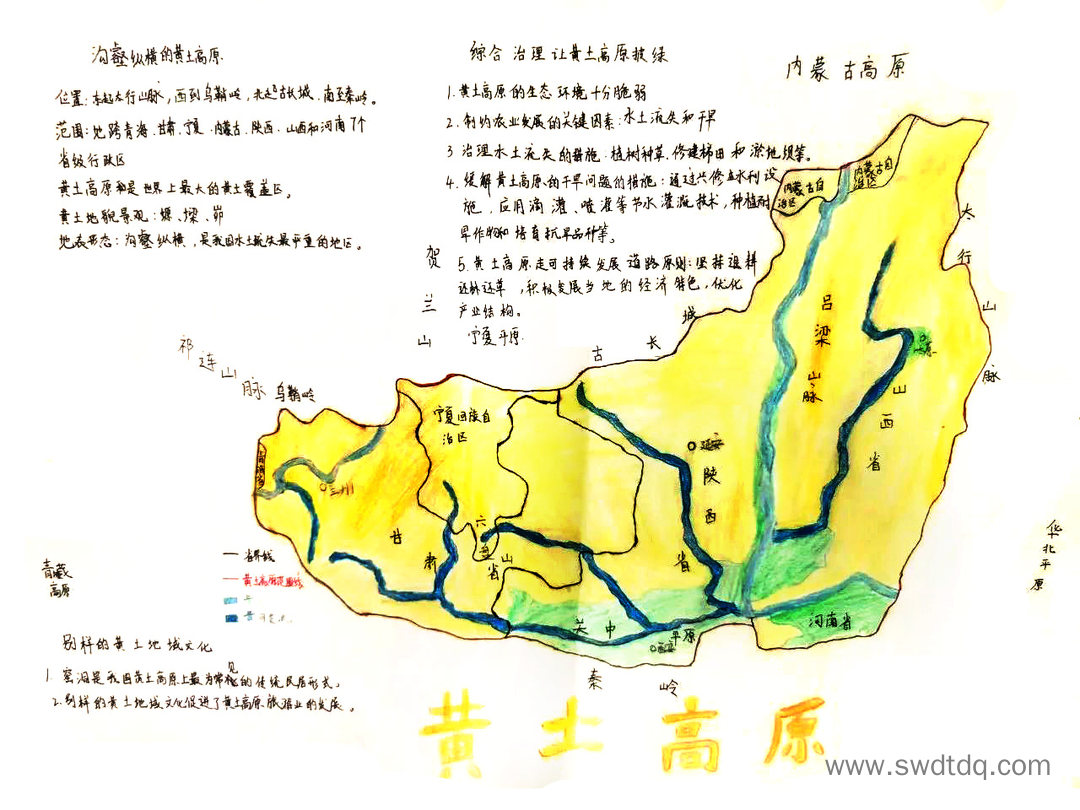 沟壑纵横的黄土高原
位置：东起太行山脉，西到乌鞘岭，北起古长城，南至秦岭。
范围：地跨青海、甘肃、宁夏、内蒙古、陕西、山西和河南7个
省级行政区
黄土高原是世界上最大的黄土覆盖区。
黄土地貌景观：塬、墚、峁
地表形态：沟壑纵横，是我国水土流失最严重的地区。
综合治理让黄土高原披绿
1.黄土高原的生态环境十分脆弱
2.制约农业发展的关键因素：水土流失和干旱
3治理水土流失的措施：植树种草、修建梯田和淤地坝等。
4.缓解黄土高原的干旱问题的措施：通过兴修水利设
施，应用滴灌、喷灌等节水灌溉技术，种植耐
旱作物和培育抗旱品种等。
5.黄土高原走可持续发展道路原则：坚持退耕
还林还草，积极发展当地的经济特色，优化
产业结构。
内蒙古高原
内蒙古自
治区
内蒙古自
治区
太行山脉
贺兰山
宁夏平原
古长城
祁连山脉
乌鞘岭
吕梁山脉
山西省
太原
宁夏回族自
治区
延安
陕西省
青海省
兰州
甘肃省
六盘山
华北平原
青藏
高原
省界线
黄土高原范围线
关中平原
西安
河南省
秦岭
别样的黄土地域文化
1.窑洞是我国黄土高原上最为常见的传统民居形式。
2.别样的黄土地域文化促进了黄土高原旅游业的发展。
黄土高原
www.swdtdq.com